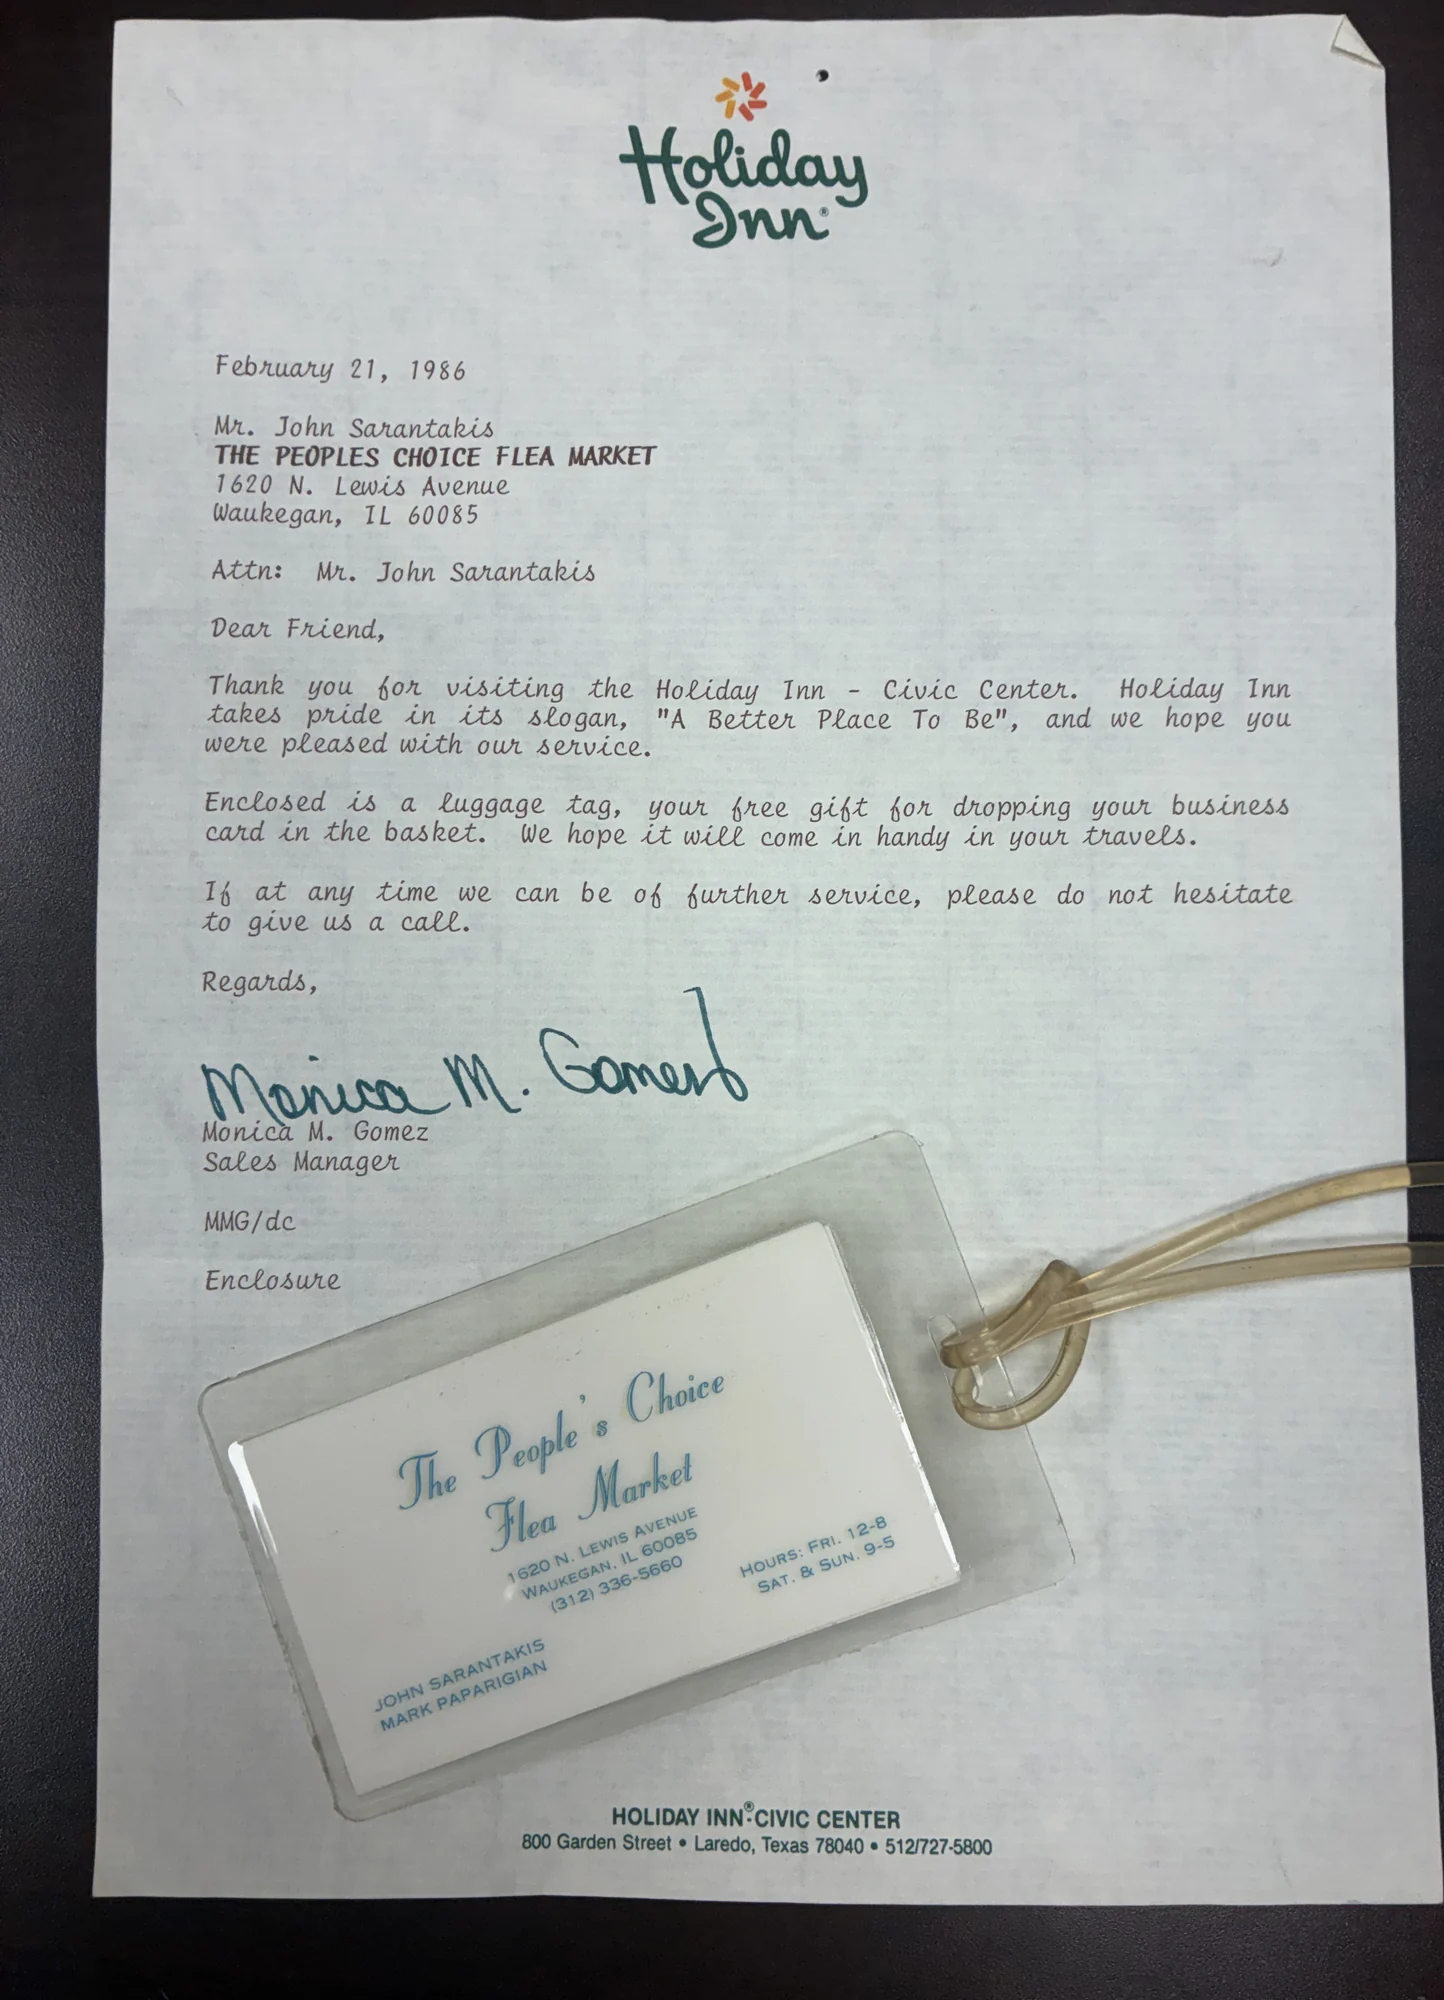 Holiday
Inn®
February 21, 1986
Mr. John Sarantakis
THE PEOPLES CHOICE FLEA MARKET
1620 N. Lewis Avenue
Waukegan, IL 60085
Attn: Mr. John Sarantakis
Dear Friend,
Thank you for visiting the Holiday Inn - Civic Center. Holiday Inn
takes pride in its slogan, "A Better Place To Be", and we hope you
were pleased with our service.
Enclosed is a luggage tag, your free gift for dropping your business
card in the basket. We hope it will come in handy in your travels.
If at any time we can be of further service, please do not hesitate
to give us a call.
Regards,
Monica M. Gomez
Monica M. Gomez
Sales Manager
MMG/dc
Enclosure
The People's Choice
Flea Market
1620 N. LEWIS AVENUE
WAUKEGAN, IL 60085
(312) 336-5660
HOURS: FRI. 12-8
SAT. & SUN. 9-5
JOHN SARANTAKIS
MARK PAPARIGIAN
HOLIDAY INN®-CIVIC CENTER
800 Garden Street • Laredo, Texas 78040 • 512/727-5800